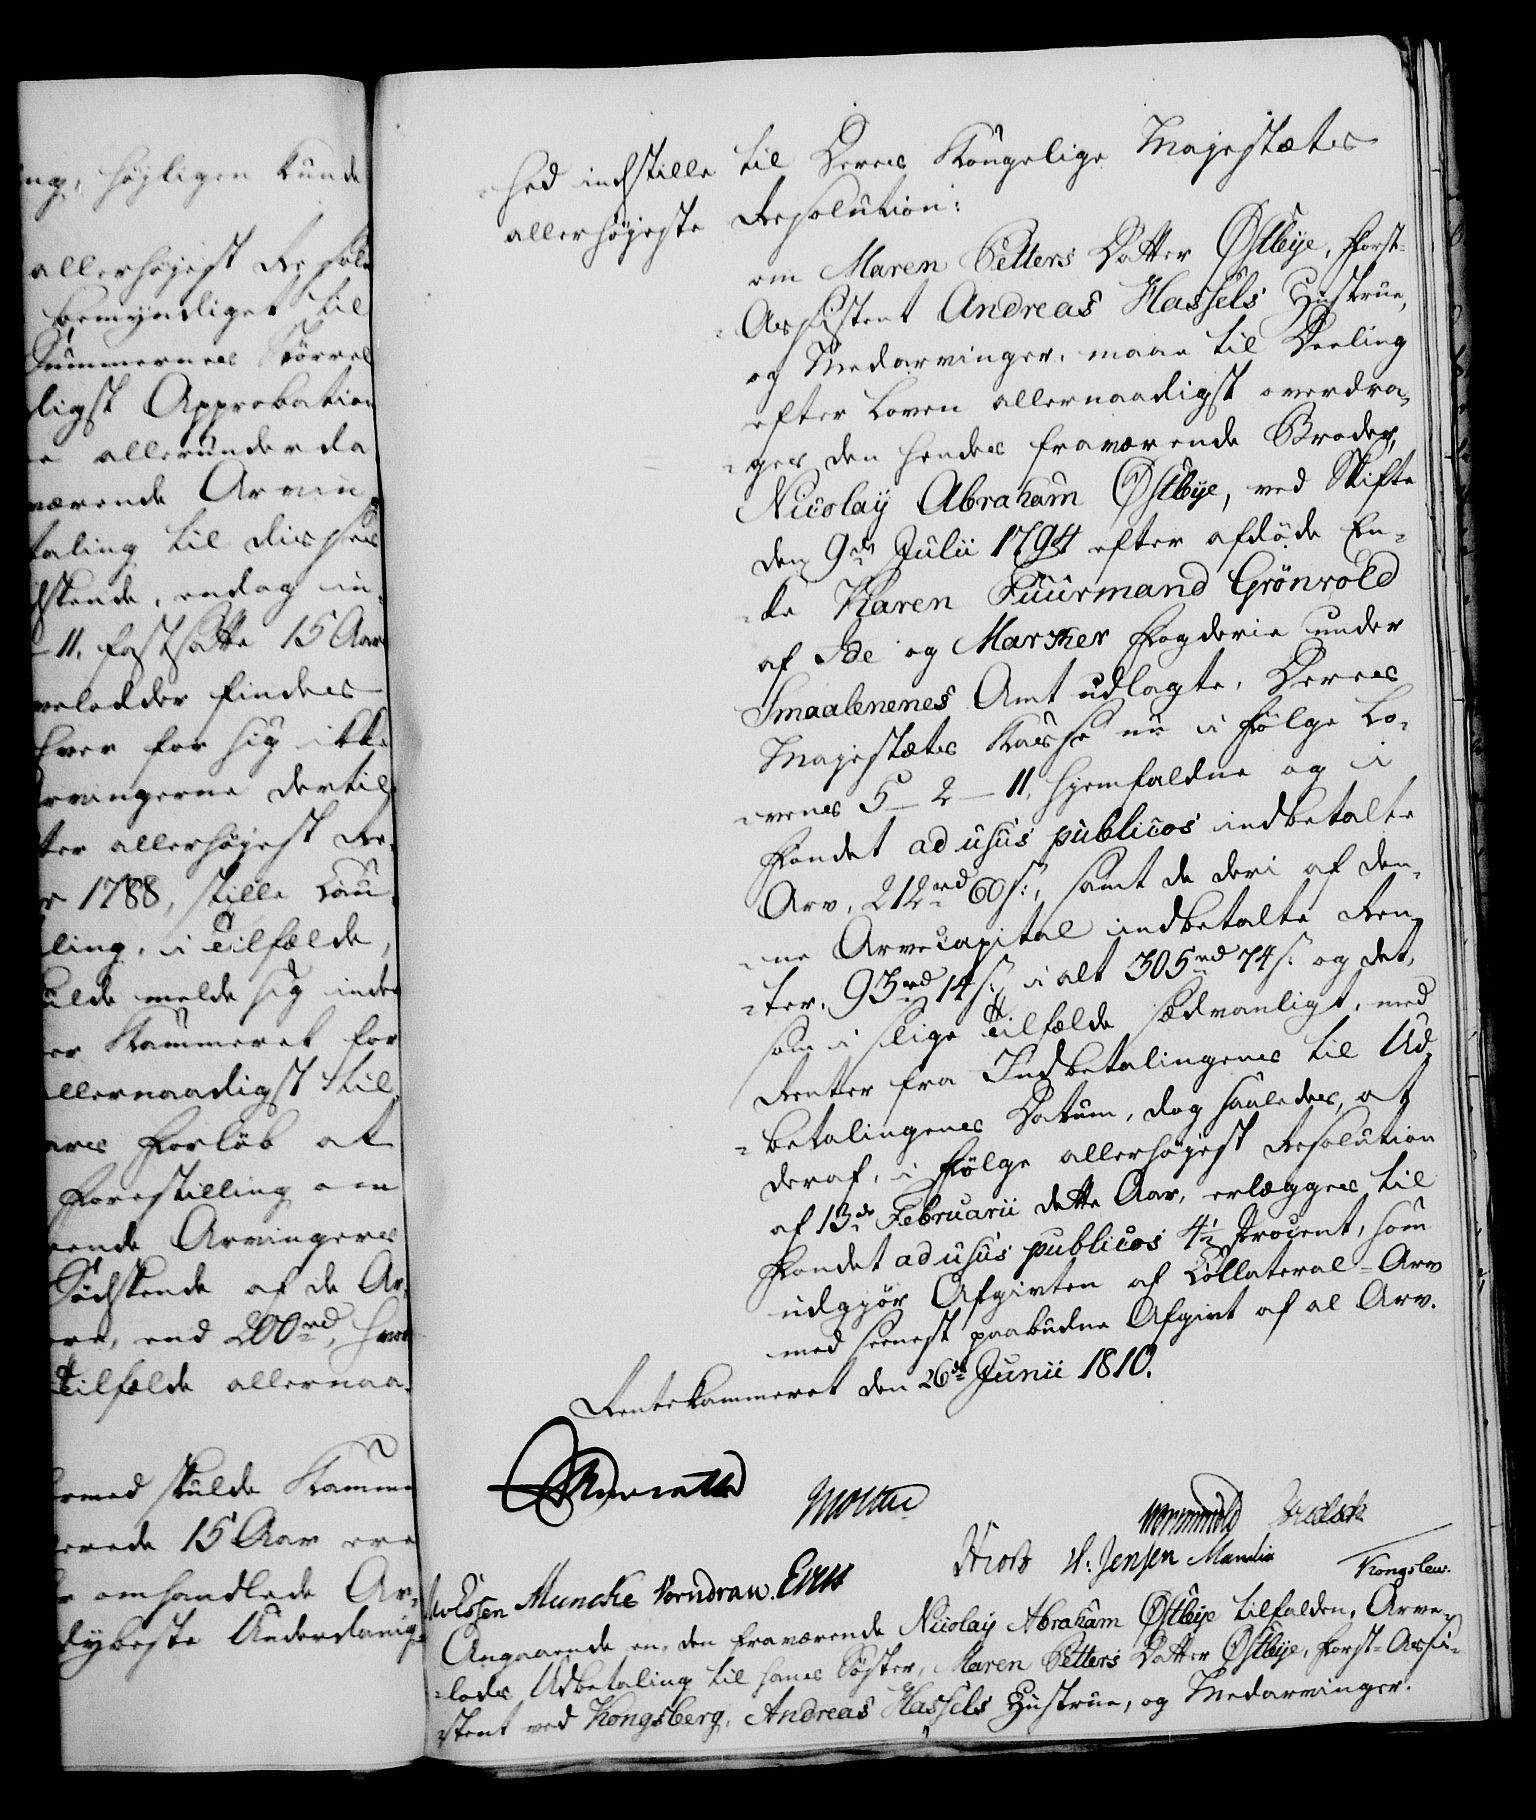 ng, höjligen kunde
allerhöjest Resolu
bemyndiget til
Summernes Större
ligst Approbation
e allerunderda
værende Arvin
taling til disses
dskende, endog in
- 11. fastsatte 15 Aar
velodder findes
hver for sig ikke
rvingerne dertil
ter allerhöjest Re-
r 1788, stille Cau
ling, i Tilfælde,
ulde melde sig inde
er Kammeret for
llernaadigst til
ares Forlöb at
Forestilling om
ende Arvinger
Södskende af de Ar-
re, end 200rd, hvor
Tilfælde allernaa-
rmed skulde Kamme
erede 15 Aar ere
omhandlede Ar-
dybeste Underdanig-
-hed indstille til Deres Kongelige Majestæts
allerhöjeste Resolution:
om Maren Petters Datter Östbÿe, Forst-
-Assistent Andreas Hassels Hustrue,
og Medarvinger, maae til Deeling
efter Loven allernaadigst overdra-
-ges den hendes fraværende Broder,
Nicolaÿ Abraham Östbÿe, ved Skifte
den 9de Julii 1794 efter afdöde En-
-ke Karen Fuurmand Grönvold
af Ide og Marker Fogderie under
Smaalenenes Amt udlagte, Deres
Majestæts Kasse nu i Fölge Lo-
-vens 5-2-11, hjemfaldne og i
Fondet ad usus publicos indbetalte
Arv, 212rd 60 s:, samt de deri af den-
-ne Arvecapital indbetalte Ren-
-ter, 93rd 14 s:, i alt 305rd 74 s: og det,
som i slige Tilfælde sædvanligt, med
Renter fra Indbetalingens til Ud-
-betalingens Datum, dog saaledes, at
deraf, i Fölge allerhöjest Resolution
af 13de Februarii dette Aar, erlægges til
Fondet ad usus publicos 4½ Procent, som
udgjör Afgivten af Collateral-Arv
med seenest paabudne Afgivt af al Arv.
Rentekammeret den 26de Junii 1810.
Moltke
Wormskiold
Hiort H: Jensen Mandix Kongslew.
Muncke Vorndran.
Angaaende en, den fraværende Nicolaÿ Abraham Östbÿe tilfalden, Arve-
-lods Udbetaling til hans Söster, Maren Petters Datter Östbÿe, Forst-Assi-
-stent ved Kongsberg, Andreas Hassels Hustrue, og Medarvinger.